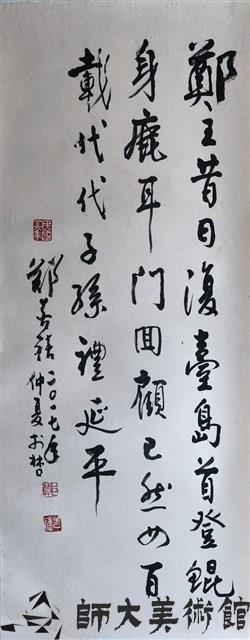 鄭王昔日復臺島首登錕
身鹿耳門回顧已然四百
載世代子孫禮延平
鄭善禧二〇一七年仲夏於
師大美術館